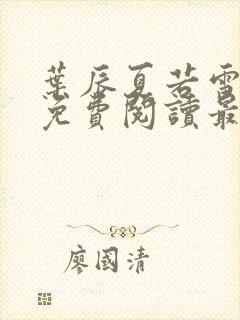 葉辰夏若雪
免費閱讀最
廖國清